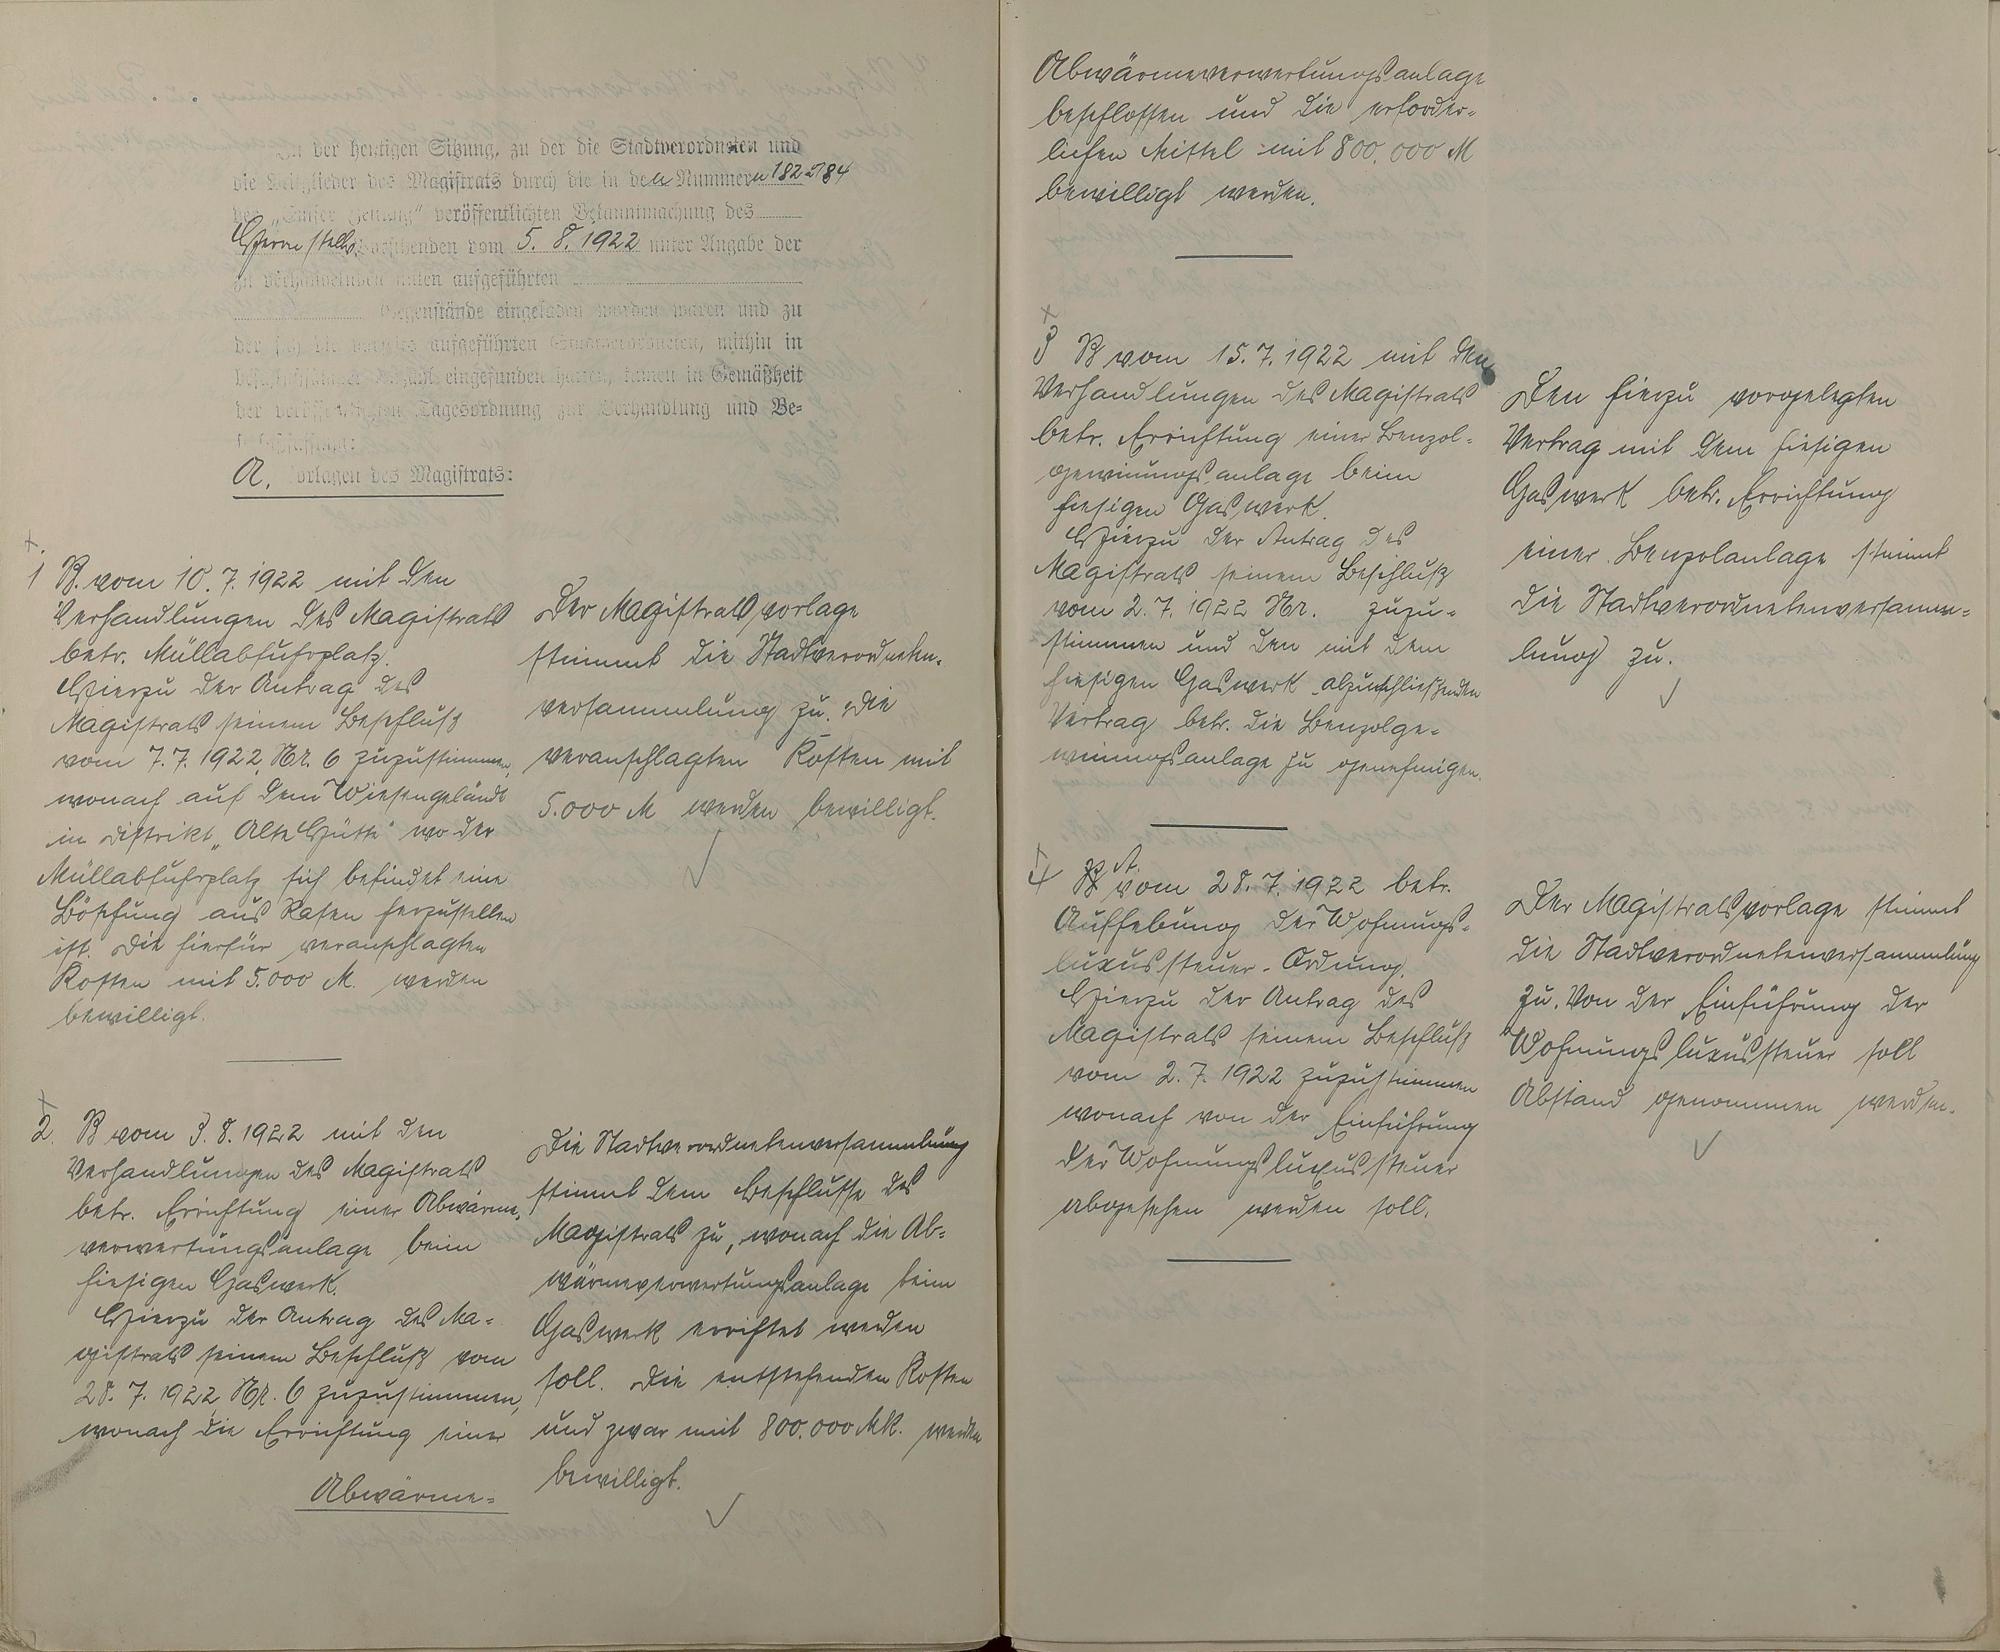 In der heutigen Sitzung, zu der die Stadtverordneten und
die Mitglieder des Magistrats durch die in den Nummern 182 u 184
der „Emser Zeitung" veröffentlichten Bekanntmachung des
Herrn stellv. Vorsitzenden vom 5. 8. 1922 unter Angabe der
zu verhandelnden unten aufgeführten
Gegenstände eingeladen worden waren und zu
der sich die vorseits aufgeführten Stadtverordneten, mithin in
beschlußfähiger Anzahl eingefunden hatten, kamen in Gemäßheit
der veröffentlichten Tagesordnung zur Verhandlung und Be-
schlußfassung:
A. Vorlagen des Magistrats:
1 B. vom 10. 7. 1922 mit den
Verhandlungen des Magistrats
betr. Müllabfuhrplatz.
Hierzu der Antrag des
Magistrats seinem Beschluß
vom 7. 7. 1922, Nr. 6 zuzustimmen,
wonach auf dem Wiesengelände
in Distrikt „Alte Hütte" wo der
Müllabfuhrplatz sich befindet eine
Böschung aus Rasen herzustellen
ist. Die hierfür veranschlagten
Kosten mit 5.000 M. werden
bewilligt.
Der Magistratsvorlage
stimmt die Stadtverordneten-
versammlung zu. Die
veranschlagten Kosten mit
5.000 M werden bewilligt.
2. B vom 3. 8. 1922 mit den
Verhandlungen des Magistrats
betr. Errichtung einer Abwärme-
verwertungsanlage beim
hiesigen Gaswerk.
Hierzu der Antrag des Ma-
gistrats seinem Beschluß vom
28. 7. 1922, Nr. 6 zuzustimmen,
wonach die Errichtung einer
Abwärme-
Die Stadtverordnetenversammlung
stimmt dem Beschlusse des
Magistrats zu, wonach die Ab-
wärmeverwertungsanlage beim
Gaswerk errichtet werden
soll. Die entstehenden Kosten
und zwar mit 800.000 Mk. werden
bewilligt.
Abwärmeverwertungsanlage
beschlossen und die erforder-
lichen Mittel mit 800.000 M
bewilligt werden.
3 B vom 15. 7. 1922 mit den
Verhandlungen des Magistrats
betr. Errichtung einer Benzol-
gewinnungsanlage beim
hiesigen Gaswerk.
Hierzu der Antrag des
Magistrats seinem Beschluß
vom 2. 7. 1922 Nr. zuzu-
stimmen und den mit dem
hiesigen Gaswerk abzuschließenden
Vertrag betr. die Benzolge-
winnungsanlage zu genehmigen.
Den hierzu vorgelegten
Vertrag mit dem hiesigen
Gaswerk betr. Errichtung
einer Benzolanlage stimmt
die Stadtverordnetenversamm-
lung zu.
4 A. vom 28. 7. 1922 betr.
Aufhebung der Wohnungs-
luxussteuer-Ordnung.
Hierzu der Antrag des
Magistrats seinem Beschluß
vom 2. 7. 1922 zuzustimmen
wonach von der Einführung
der Wohnungsluxussteuer
abgesehen werden soll.
Der Magistratsvorlage stimmt
die Stadtverordnetenversammlung
zu. Von der Einführung der
Wohnungsluxussteuer soll
Abstand genommen werden.